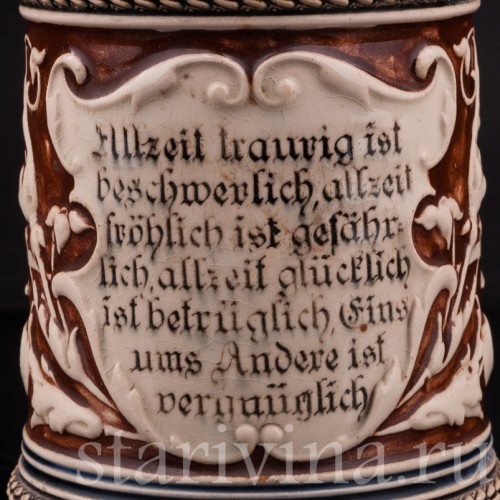 Allzeit traurig ist
beschwerlich, allzeit
fröhlich ist gefähr-
lich, allzeit glücklich
ist betrüglich, Eins
ums Andere ist
vergnüglich
starivina.ru